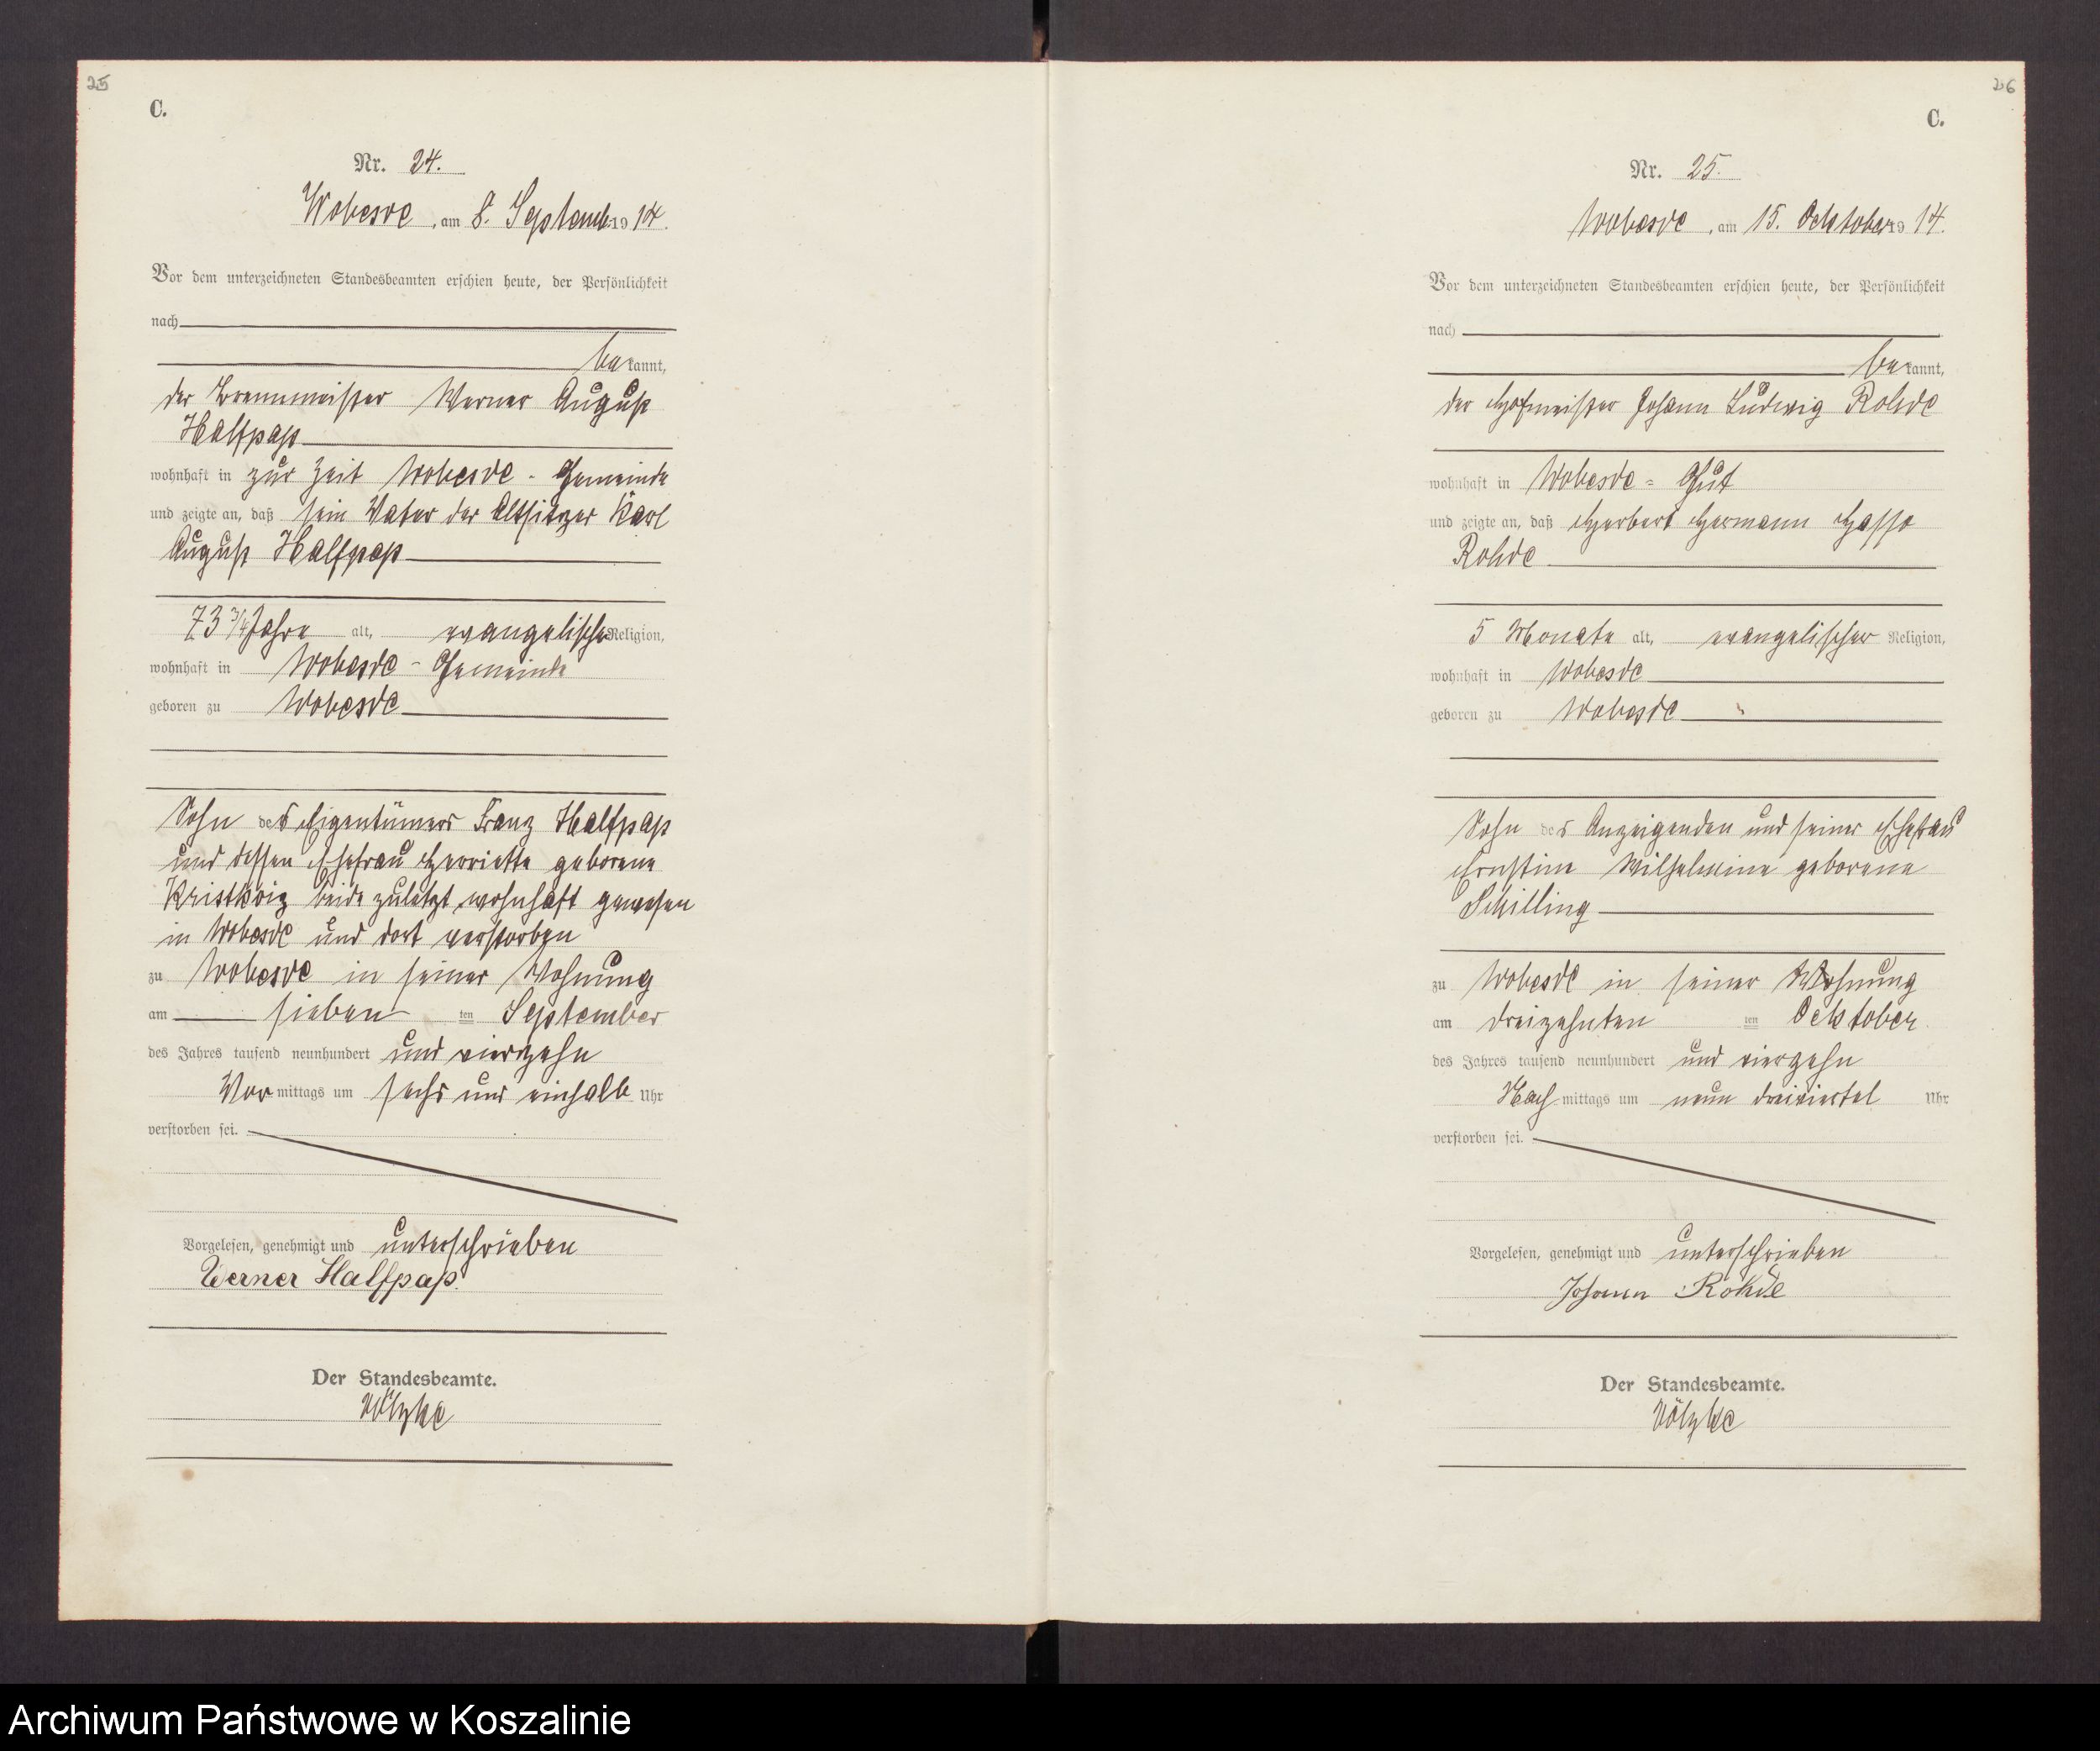 25
C.
Nr. 24.
Wobesde, am 8. Septemb. 1914.
Vor dem unterzeichneten Standesbeamten erschien heute, der Persönlichkeit
nach
bekannt,
der Brennmeister Werner August
Halfpap
wohnhaft in zur Zeit Wobesde - Gemeinde
und zeigte an, daß sein Vater der Altsitzer Karl
August Halfpap
73 3/4 Jahre alt, evangelischer Religion,
wohnhaft in Wobesde - Gemeinde
geboren zu Wobesde
Sohn des Eigentümers Franz Halfpap
und dessen Ehefrau Henriette geborene
beide zuletzt wohnhaft gewesen
in Wobesde und dort verstorben
zu Wobesde in seiner Wohnung
am sieben ten September
des Jahres tausend neunhundert und vierzehn
Vor mittags um sechs und einhalb Uhr
verstorben sei.
Vorgelesen, genehmigt und unterschrieben
Werner Halfpap.
Der Standesbeamte.
Völzke
26
C.
Nr. 25.
Wobesde, am 15. Ocktober 1914.
Vor dem unterzeichneten Standesbeamten erschien heute, der Persönlichkeit
nach
bekannt,
der Hofmeister Johann Ludwig Rohde
wohnhaft in Wobesde = Gut
und zeigte an, daß Herbert Hermann Hasso
Rohde
5 Monate alt, evangelischer Religion,
wohnhaft in Wobesde
geboren zu Wobesde
Sohn des Anzeigenden und seiner Ehefrau
Ernstine Wilhelmine geborene
Schilling
zu Wobesde in seiner Wohnung
am dreizehnten ten Ocktober
des Jahres tausend neunhundert und vierzehn
Nach mittags um neun dreiviertel Uhr
verstorben sei.
Vorgelesen, genehmigt und unterschrieben
Johann Rohde
Der Standesbeamte.
Völzke
Archiwum Państwowe w Koszalinie